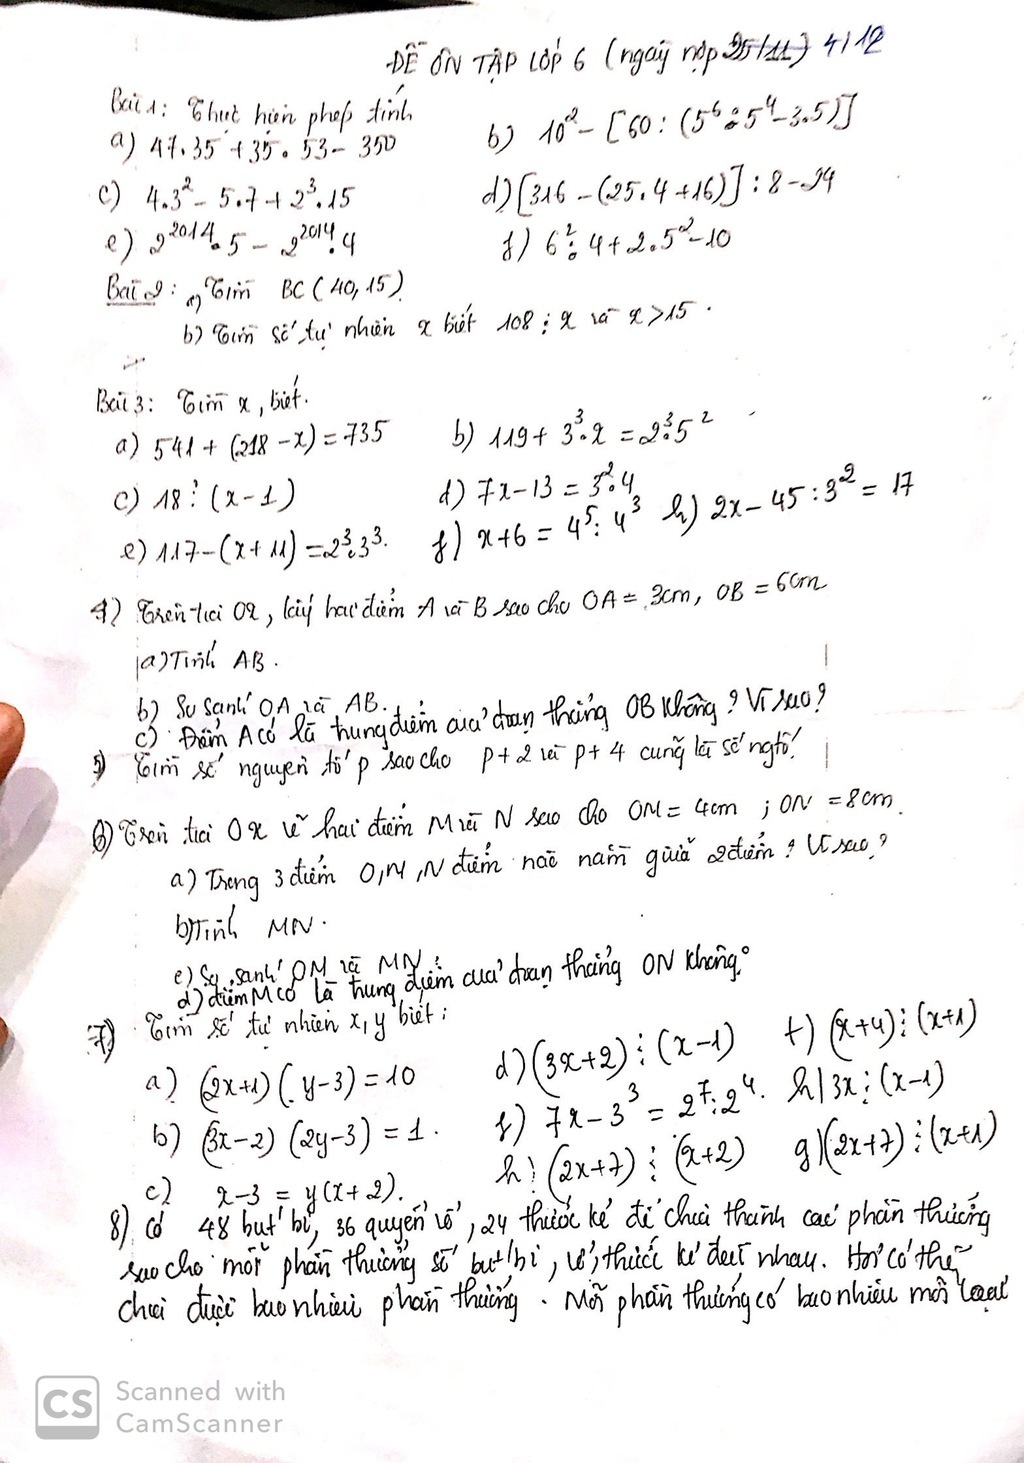 ĐỀ ÔN TẬP LỚP 6 (ngày nộp 25/11) 4/12
Bài 1: Thực hiện phép tính
a) 47.35 + 35.53 - 350
b) 10² - [60 : (5⁶ : 5⁴ - 3.5)]
c) 4.3² - 5.7 + 2³.15
d) [316 - (25.4 + 16)] : 8 - 24
e) 2²⁰¹⁴.5 - 2²⁰¹⁴.4
f) 6² : 4 + 2.5² - 10
Bài 2: a) Tìm BC (40, 15)
b) Tìm số tự nhiên x biết 108 ⋮ x và x > 15.
Bài 3: Tìm x, biết.
a) 541 + (218 - x) = 735
b) 119 + 3³.x = 2³.5²
c) 18 ⋮ (x - 1)
d) 7x - 13 = 3².4
e) 117 - (x + 11) = 2³.3³.
f) x + 6 = 4⁵ : 4³
h) 2x - 45 : 3² = 17
4) Trên tia Ox, lấy hai điểm A và B sao cho OA = 3cm, OB = 6cm
a) Tính AB.
b) So sánh OA và AB.
c) Điểm A có là trung điểm của đoạn thẳng OB không? Vì sao?
5) Tìm số nguyên tố p sao cho p + 2 và p + 4 cũng là số ng tố!
6) Trên tia Ox vẽ hai điểm M và N sao cho OM = 4cm ; ON = 8cm.
a) Trong 3 điểm O, M, N điểm nào nằm giữa 2 điểm? Vì sao?
b) Tính MN.
c) So sánh OM và MN?
d) điểm M có là trung điểm của đoạn thẳng ON không?
7) Tìm số tự nhiên x, y biết:
a) (2x+1)(y-3) = 10
d) (3x+2) ⋮ (x-1)
t) (x+4) ⋮ (x+1)
b) (3x-2)(2y-3) = 1.
f) 7x - 3³ = 2⁷ : 2⁴.
h) 3x ⋮ (x-1)
c) x-3 = y(x+2).
h) (2x+7) ⋮ (x+2)
g) (2x+7) ⋮ (x+1)
8) Có 48 bút bi, 36 quyển vở, 24 thước kẻ để chia thành các phần thưởng
sao cho mỗi phần thưởng số bút bi, vở, thước kẻ đều nhau. Hỏi có thể
chia được bao nhiêu phần thưởng. Mỗi phần thưởng có bao nhiêu mỗi loại
CS Scanned with
CamScanner